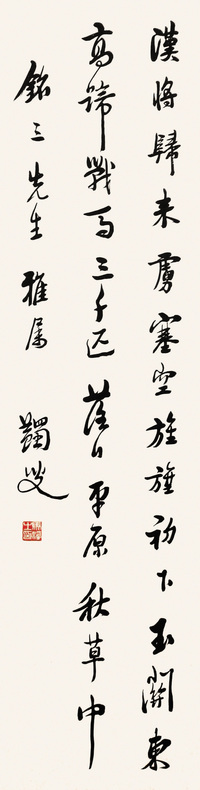 漢將歸来虜塞空旌旗初下玉關東
高蹄戰馬三千匹落日平原秋草中
銘三先生雅属 蠲叟